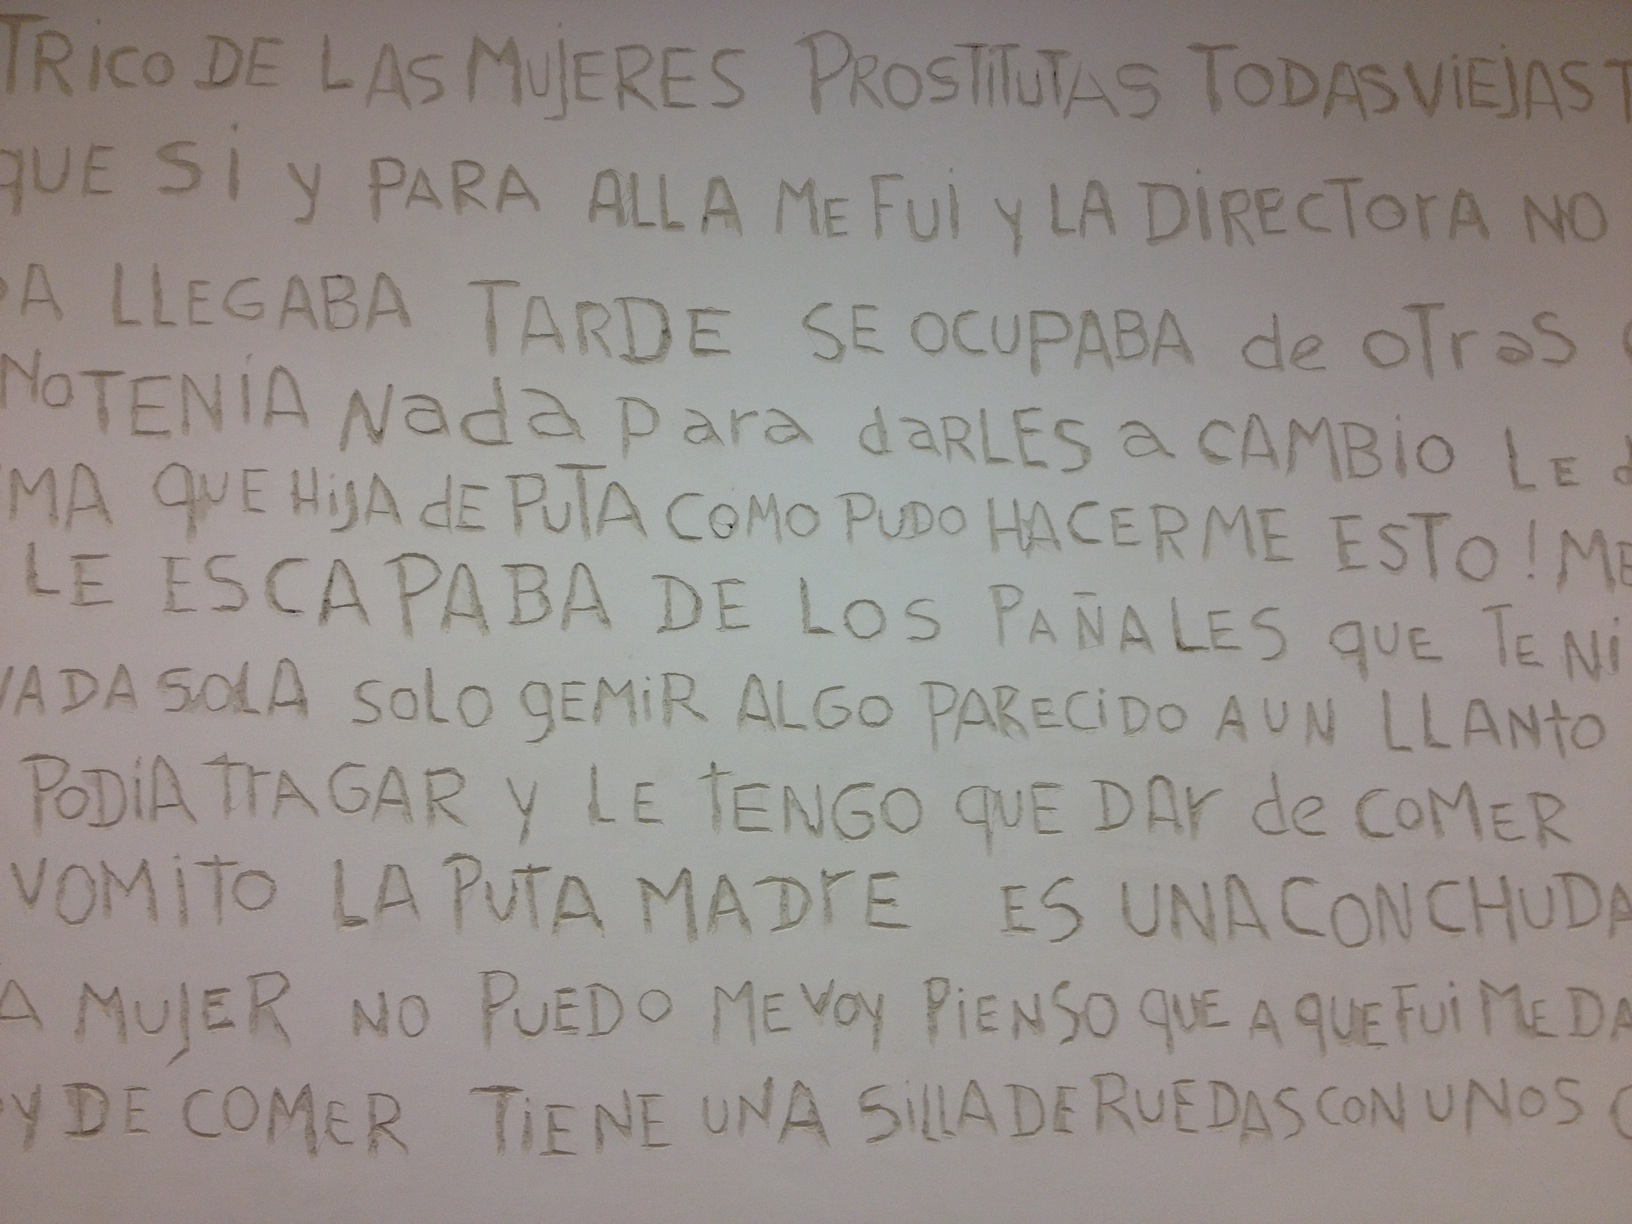 TRICO DE LAS MUJERES PROSTITUTAS TODAS VIEJAS T
QUE SI Y PARA ALLA ME FUI Y LA DIRECTORA NO
DA LLEGABA TARDE SE OCUPABA de OTras
NO TENIA Nada Para daRLES a CAMBIO LE
MA QUE HIJA dE PUTA COMO PUDO HACERME ESTO! ME
LE ESCAPABA DE LOS PAÑALES QUE TENI
VADA SOLA SOLO gEMIR ALGO PARECIDO A UN LLANtO
PODIA TrAGAR Y LE tENGO QUE DAr de COMER
VOMITO LA PUTA MADrE ES UNA CONCHUDA
A MUJER NO PUEDO ME VOY PIENSO QUE A QUE FUI ME DA
Y DE COMER TIENE UNA SILLA DE RUEDAS CON UNOS